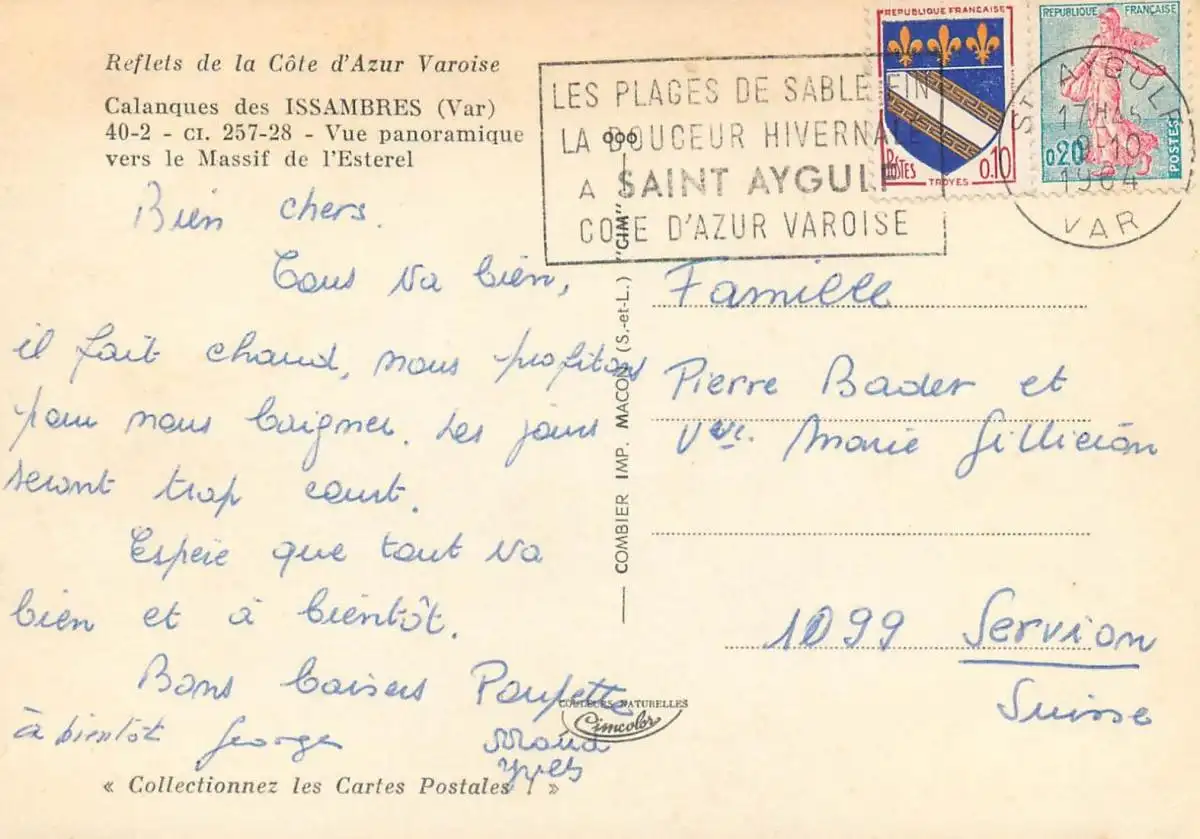 Reflets de la Côte d'Azur Varoise
Calanques des ISSAMBRES (Var)
40-2 - CI. 257-28 - Vue panoramique
vers le Massif de l'Esterel
Bien chers.
Tous va bien,
il fait chaud, nous profitons
pour nous baigner. Les jours
seront trop court.
Espère que tout va
bien et à bientôt.
Bons baisers Poupette
à bientôt Georges
Yves
« Collectionnez les Cartes Postales ! »
COMBIER IMP. MACON (S.-et-L.) "CIM"
COULEURS NATURELLES
Cimcolor
LES PLAGES DE SABLE FIN
LA DOUCEUR HIVERNALE
A SAINT AYGULF
COTE D'AZUR VAROISE
REPUBLIQUE FRANCAISE
POSTES
0.10
TROYES
REPUBLIQUE FRANÇAISE
0,20
POSTES
ST AYGULF
17H45
-10
1964
VAR
Famille
Pierre Bader et
Vve. Marie Gilliéron
1099 Servion
Suisse